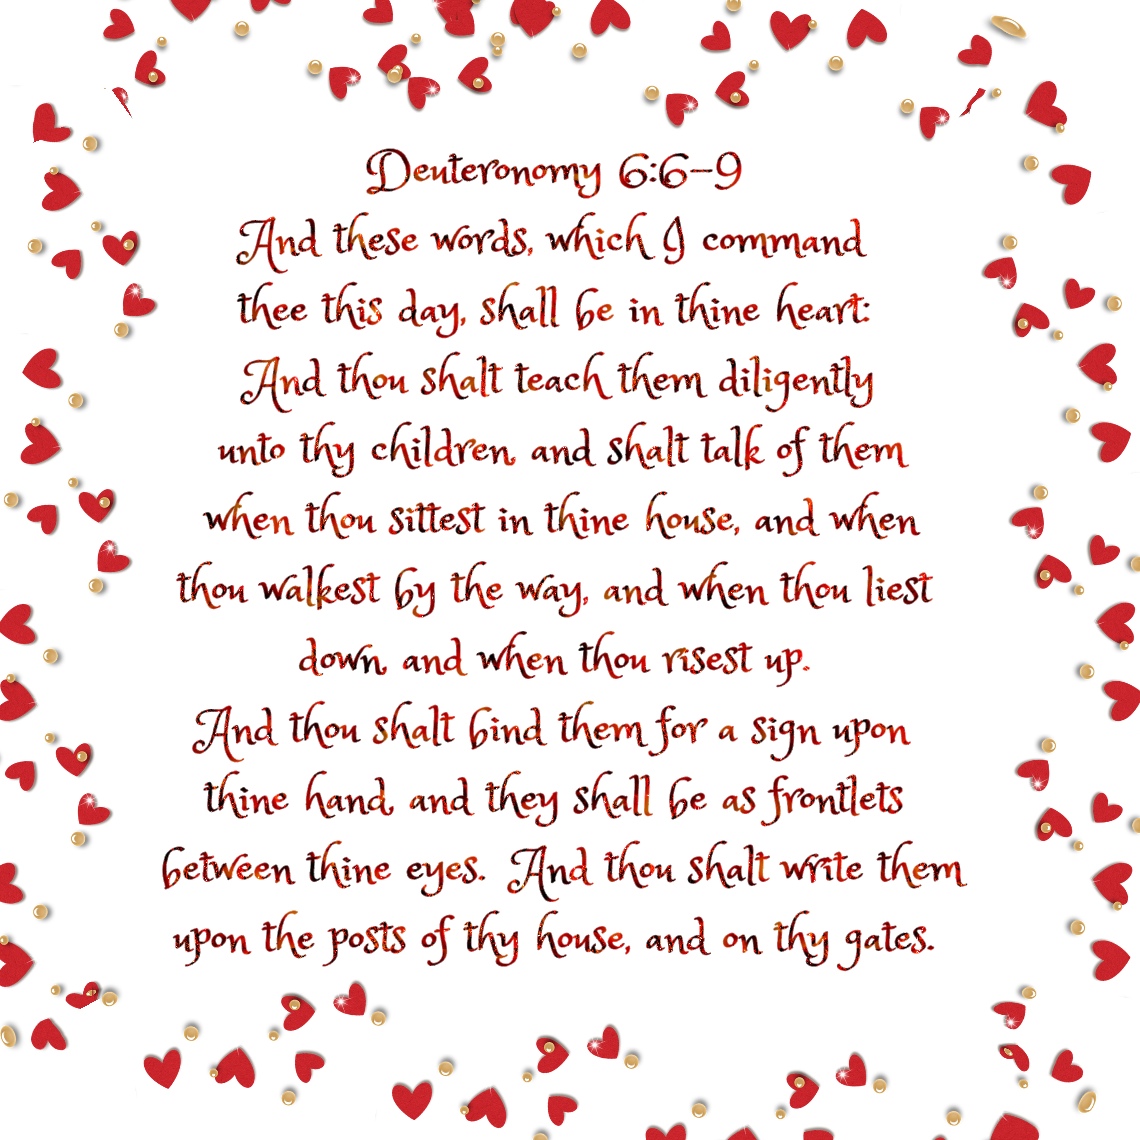 Deuteronomy 6:6-9
And these words, which I command
thee this day, shall be in thine heart:
And thou shalt teach them diligently
unto thy children, and shalt talk of them
when thou sittest in thine house, and when
thou walkest by the way, and when thou liest
down, and when thou risest up.
And thou shalt bind them for a sign upon
thine hand, and they shall be as frontlets
between thine eyes. And thou shalt write them
upon the posts of thy house, and on thy gates.